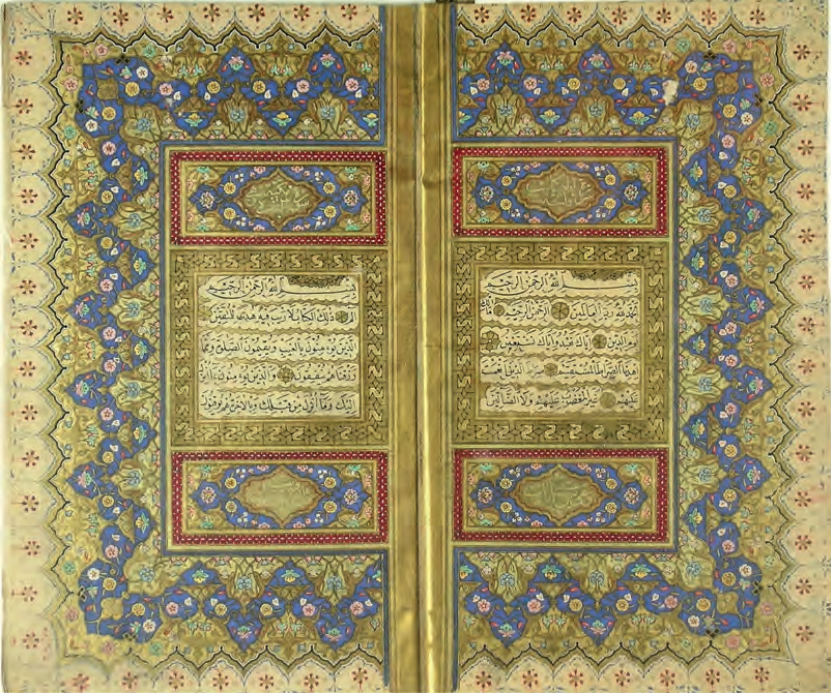 بسم الله الرحمن الرحيم
الحمد لله رب العالمين الرحمن الرحيم مالك
يوم الدين اياك نعبد واياك نستعين
اهدنا الصراط المستقيم صراط الذين انعمت
عليهم غير المغضوب عليهم ولا الضالين
بسم الله الرحمن الرحيم
الم ذلك الكتاب لا ريب فيه هدى للمتقين
الذين يؤمنون بالغيب ويقيمون الصلوة ومما
رزقناهم ينفقون والذين يؤمنون بما انزل
اليك وما انزل من قبلك وبالاخرة هم يوقنون